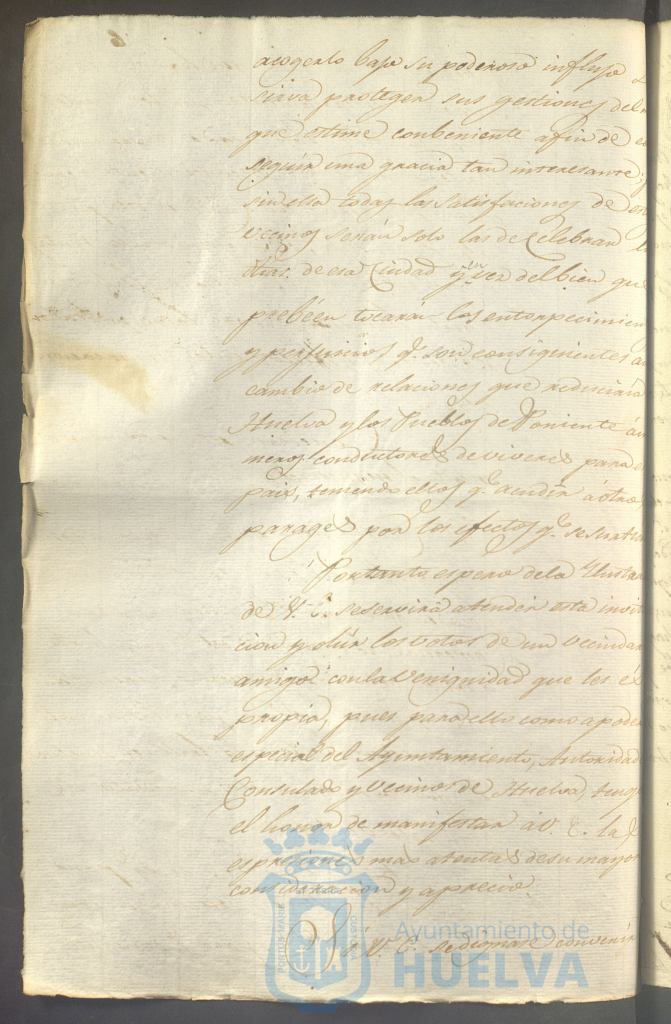 acogerlo bajo su poderoso influjo
sirva proteger sus gestiones del
que estime conbeniente afin de
seguir una gracia tan interesante,
sin ella todas las satisfacciones de
vecinos serán solo las de celebrar
dias de esa Ciudad y en vez del bien que
prebéen tocarán los entorpecimien
y perjuicios q.e son consiguientes a
cambio de relaciones que reduciria
Huelva y los Pueblos de Poniente á
meros conductores de viveres para
pais, teniendo ellos q.e acudir a otro
parages por los efectos q.e se
Portanto espero de la Ilustra
de V. E. se servirá atender esta invi
cion y oír los votos de un vecindar
amigo con la veniguidad que les és
propia, pues para ello como apode
especial del Ayuntamiento, Autoridad
Consulado y vecinos de Huelva, teng
el honor de manifestar á V. E. la
espresiones mas atentas de su mayor
consideracion y aprecio.
Si V. E. se dignase convenir
Ayuntamiento de
HUELVA
PORTUS MARIS
CUSTODIA